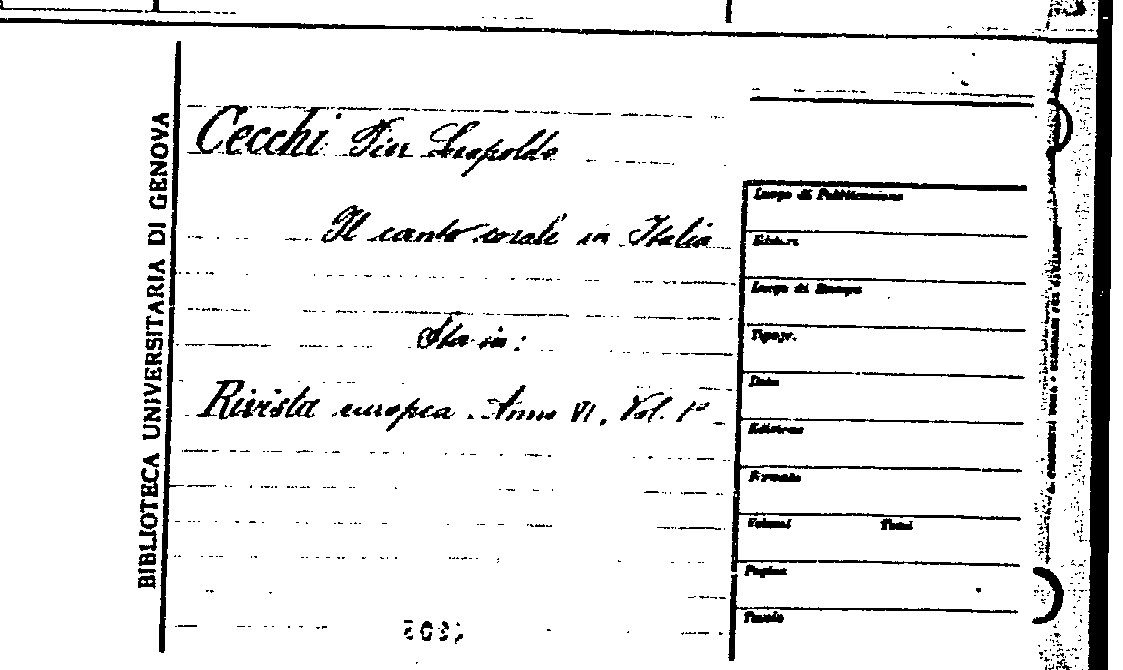 BIBLIOTECA UNIVERSITARIA DI GENOVA
Cecchi Pier Leopoldo
Il canto corale in Italia
Sta in:
Rivista europea. Anno VI, Vol. 1º
Luogo di Pubblicazione
Editore
Luogo di Stampa
Tipogr.
Data
Edizione
Formato
Volumi Tomi
Pagine
Tavole